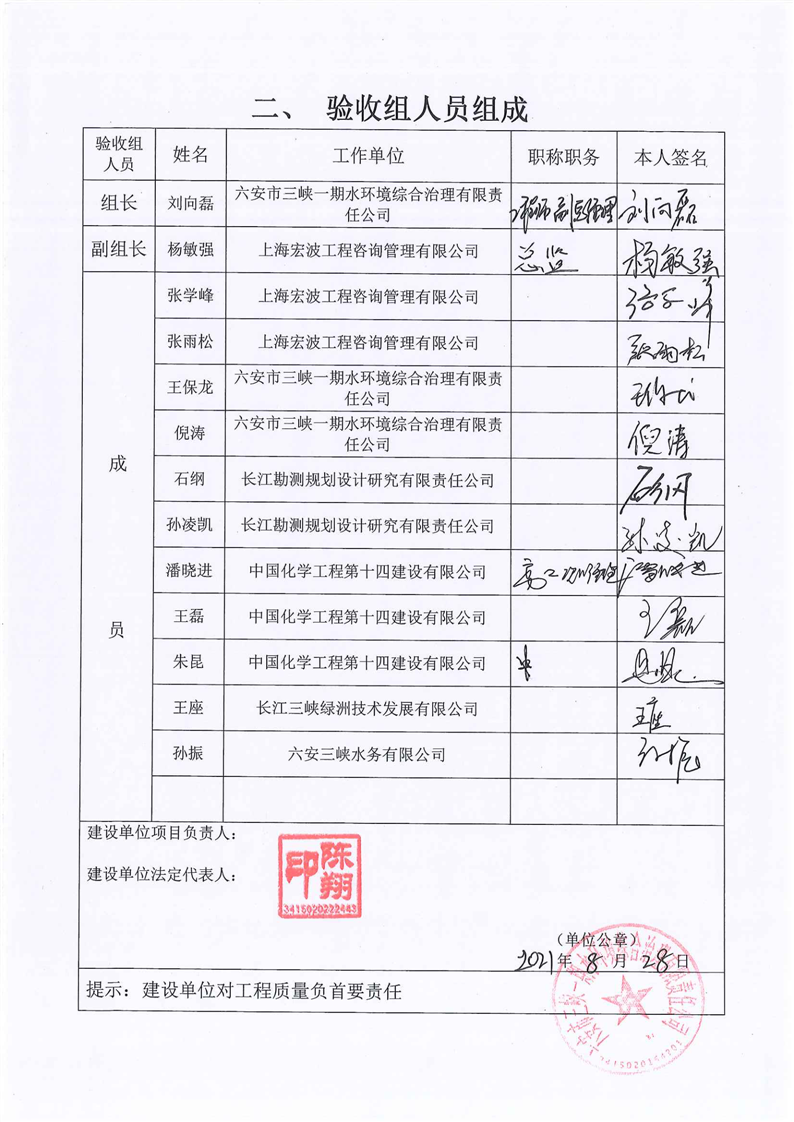 二、 验收组人员组成
验收组人员 姓名 工作单位 职称职务 本人签名
组长 刘向磊 六安市三峡一期水环境综合治理有限责任公司 刘向磊
副组长 杨敏强 上海宏波工程咨询管理有限公司 总监 杨敏强
成员
张学峰 上海宏波工程咨询管理有限公司
张雨松 上海宏波工程咨询管理有限公司 张雨松
王保龙 六安市三峡一期水环境综合治理有限责任公司
倪涛 六安市三峡一期水环境综合治理有限责任公司 倪涛
石纲 长江勘测规划设计研究有限责任公司
孙凌凯 长江勘测规划设计研究有限责任公司 孙凌凯
潘晓进 中国化学工程第十四建设有限公司 高工
王磊 中国化学工程第十四建设有限公司 王磊
朱昆 中国化学工程第十四建设有限公司
王座 长江三峡绿洲技术发展有限公司 王座
孙振 六安三峡水务有限公司 孙振
建设单位项目负责人：
建设单位法定代表人：
陈翔印
3415020222443
（单位公章）
2021年 8 月 28 日
提示：建设单位对工程质量负首要责任